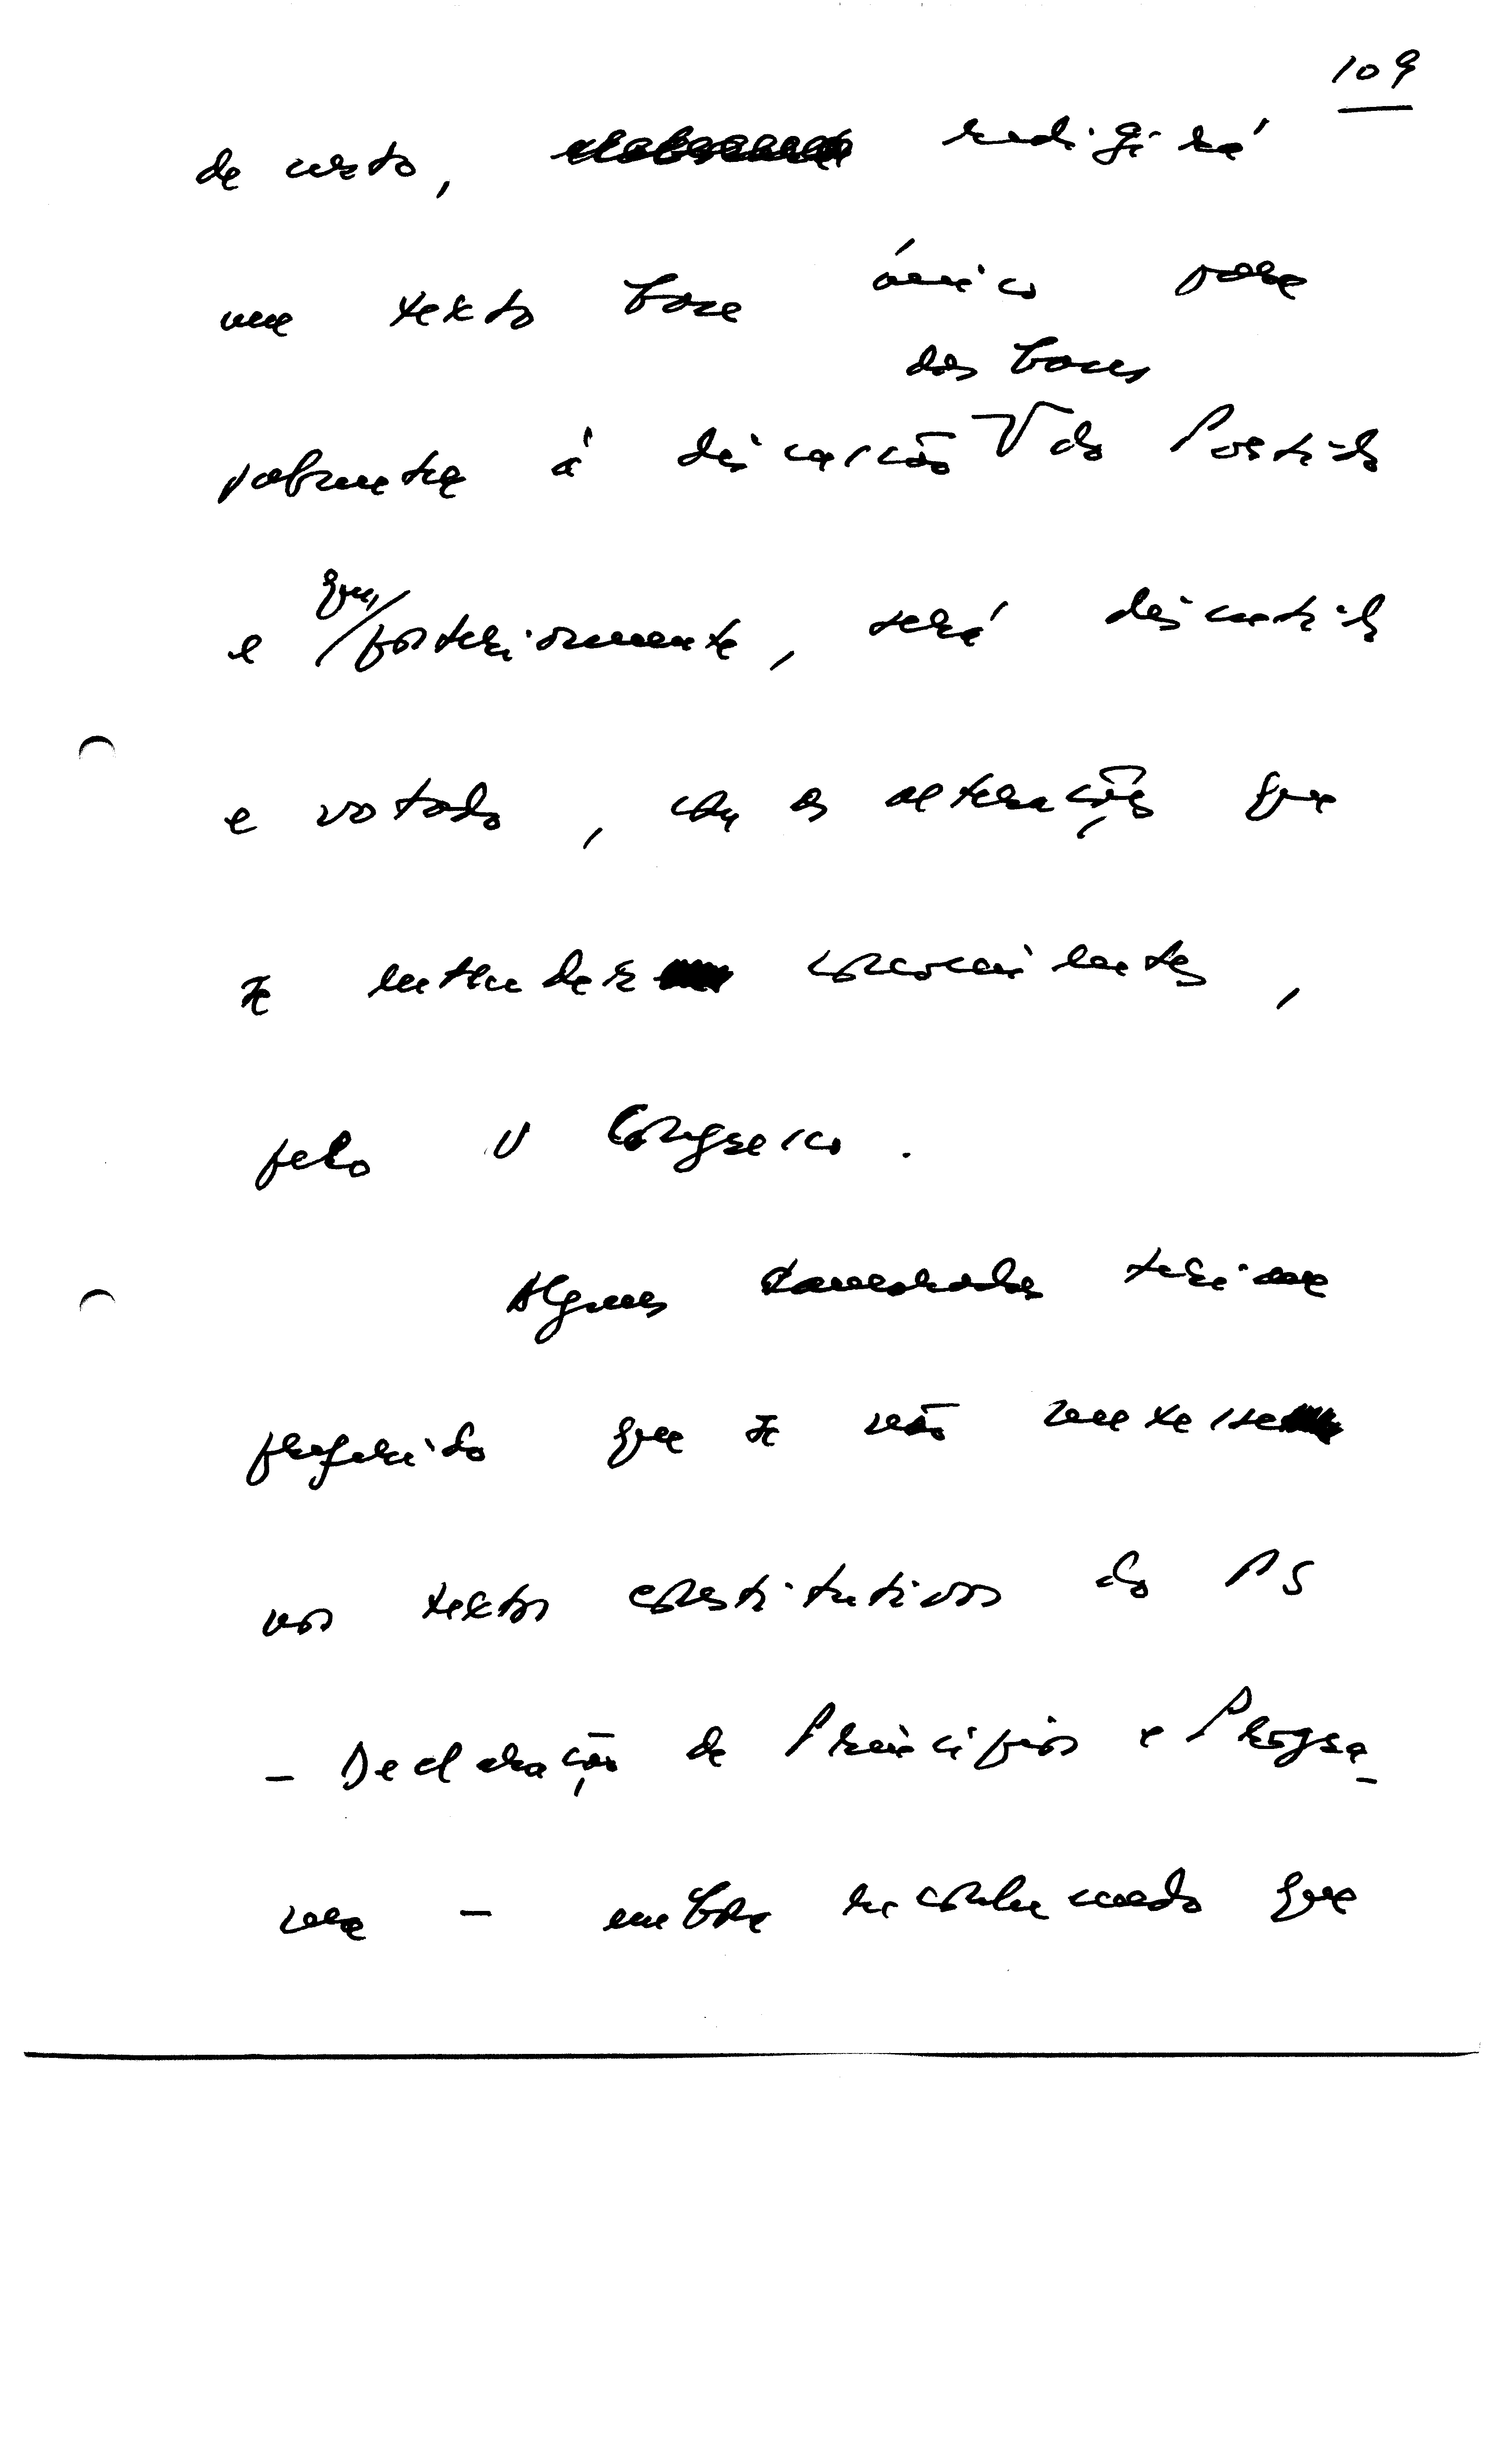 109
de resto, redigirá
um texto base único para
das bases
submeter à discussão V do Partido
que,
e / posteriormente, será discutido
e votado, com as alterações que
se entender convenientes,
pelo V Congresso.
Alguns camaradas teriam
preferido que se não mexesse
nos textos constitutivos do PS
- Declaração de Princípios e Progra-
ma - embora reconhecendo que